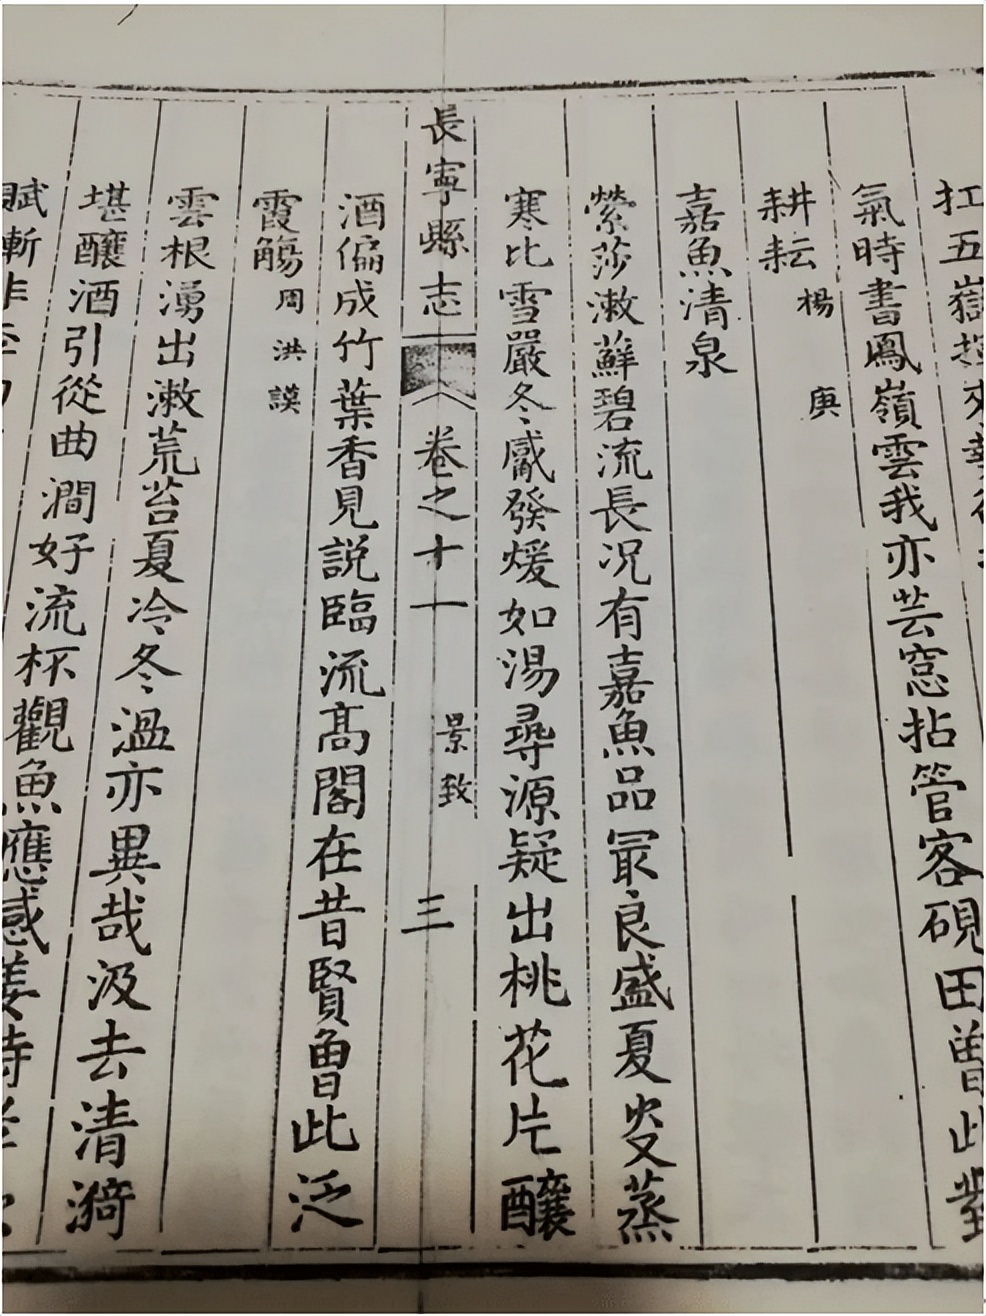 扛五嶽
氣時書鳳嶺雲我亦芸窓拈管客硯田曾此對
耕耘 楊庚
嘉魚清泉
縈莎漱蘚碧流長况有嘉魚品冣良盛夏炎蒸
寒比雪嚴冬觱發煖如湯尋源疑出桃花片釀
長寧縣志 卷之十一 景致 三
酒偏成竹葉香見説臨流高閣在昔賢曾此泛
霞觴 周洪謨
雲根湧出漱荒苔夏冷冬温亦異哉汲去清漪
堪釀酒引從曲澗好流杯觀魚應感姜詩孝
賦慚非